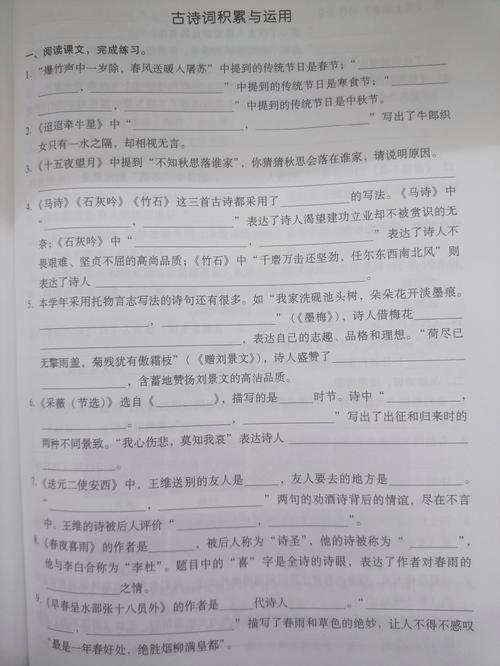 古诗词积累与运用
一、阅读课文，完成练习。
1. “爆竹声中一岁除，春风送暖入屠苏”中提到的传统节日是春节；“
，”中提到的传统节日是寒食节；“
，”中提到的传统节日是中秋节。
2.《迢迢牵牛星》中“，”写出了牛郎织
女只有一水之隔，却相视无言。
3.《十五夜望月》中提到“不知秋思落谁家”，你猜猜秋思会落在谁家，请说明原因。
4.《马诗》《石灰吟》《竹石》这三首古诗都采用了的写法。《马诗》中
“，”表达了诗人渴望建功立业却不被赏识的无
奈；《石灰吟》中“，”表达了诗人不
畏艰难、坚贞不屈的高尚品质；《竹石》中“千磨万击还坚劲，任尔东西南北风”则
表达了诗人。
5. 本学年采用托物言志写法的诗句还有很多。如“我家洗砚池头树，朵朵花开淡墨痕。
，”（《墨梅》），诗人借梅花
，表达自己的志趣、品格和理想。“荷尽已
无擎雨盖，菊残犹有傲霜枝”（《赠刘景文》），诗人盛赞了
，含蓄地赞扬刘景文的高洁品质。
6.《采薇（节选）》选自《》，描写的是时节。诗中“，
，，”写出了出征和归来时的
两种不同景致。“我心伤悲，莫知我哀”表达诗人
。
7.《送元二使安西》中，王维送别的友人是，友人要去的地方是。
“，”两句的劝酒诗背后的情谊，尽在不言
中。王维的诗被后人评价“，”。
8.《春夜喜雨》的作者是，被后人称为“诗圣”，他的诗被称为“”，
他与李白合称为“李杜”。题目中的“喜”字是全诗的诗眼，表达了作者对春雨的
之情。
9.《早春呈水部张十八员外》的作者是代诗人。“，
”描写了春雨和草色的绝妙，让人不得不感叹
“最是一年春好处，绝胜烟柳满皇都”。